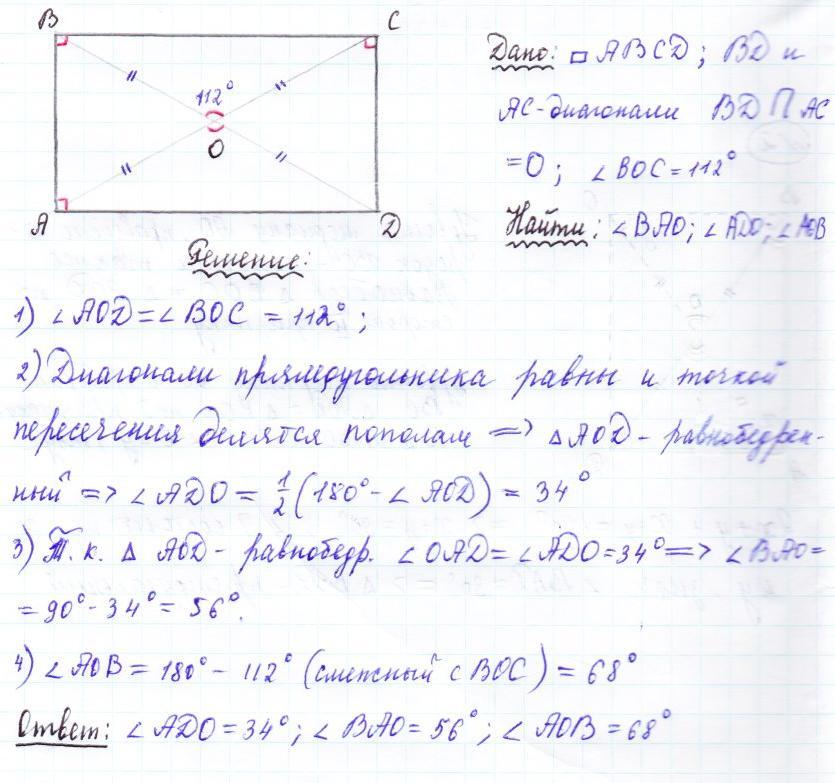 B
C
112°
O
A
D
Дано: ▭ ABCD; BD и
AC-диагонали BD ∩ AC
=O; ∠BOC=112°
Найти: ∠BAO; ∠ADO; ∠AOB
Решение:
1) ∠AOD=∠BOC = 112°;
2) Диагонали прямоугольника равны и точкой
пересечения делятся пополам => △AOD - равнобедрен-
ный => ∠ADO = 1/2(180° - ∠AOD) = 34°
3) Т.к. △ AOD - равнобедр. ∠OAD=∠ADO=34° => ∠BAO=
= 90° - 34° = 56°.
4) ∠AOB = 180° - 112° (смежный с BOC) = 68°
Ответ: ∠ADO=34°; ∠BAO=56°; ∠AOB=68°